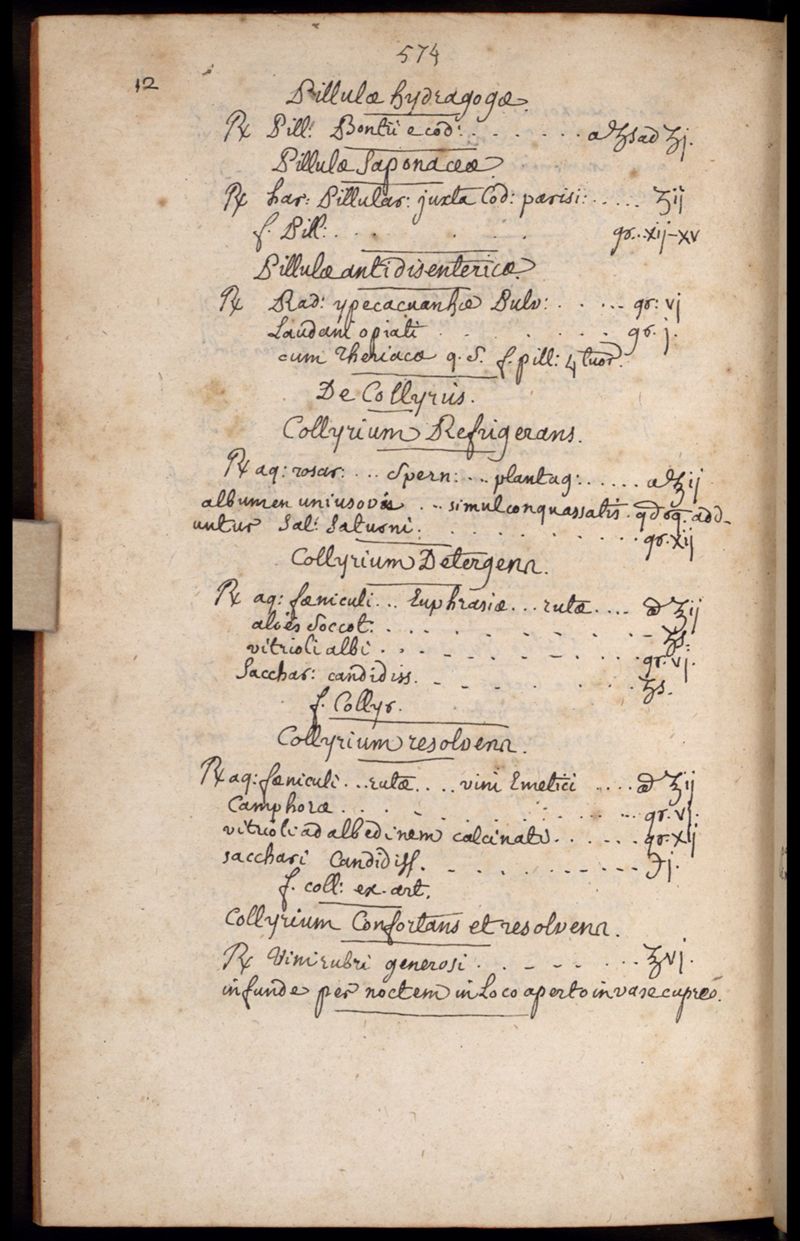 574
12
Pillulæ hydragogæ.
℞ Pill: Bontii e cod: . . . . . . a ʒs ad ʒj.
Pillulæ Saponaceæ
℞ har: Pillular: juxta Cod: parisi: . . . . . ʒij
f. Pill: . . . . . gr. xij-xv
Pillulæ antidisentericæ
℞ Rad: ypecacuanhæ Pulv: . . . . . gr: vj
Laudani opiati . . . . . . gr. j.
cum Theriacæ q. S. f. pill: 4 tuor.
De Collyriis.
Collyrium Refrigerans.
℞ aq: rosar: . . . Spern: . . . plantag: . . . . . . a ℥ij
albumen unius ovis . . . simul conquassatis. qdsq. add-
untur Sal: Saturni . . . . . . . . gr. xij
Collyrium Detergens.
℞ aq: fæniculi . . . Euphrasiæ . . . rutæ . . . . a ℥ij
aloës Soccot: . . . . . . . ʒs.
vitrioli albi . . . . . . . . gr. vj.
Sacchar: candidiss. . . . . . . ʒs.
f. Collyr.
Collyrium resolvens.
℞ aq: fæniculi . . . rutæ . . . . vini Emetici . . . . a ℥ij
Camphoræ . . . . . . . . . gr. vj.
vitrioli ad albedinem calcinati . . . . . . gr. xij
sacchari Candidiss. . . . . . . . . ℈j.
f. coll: ex. art.
Collyrium Confortans et resolvens.
℞ Vini rubri generosi . . . . . . . . ℥vj.
infunde per noctem in Loco aperto in vase cupreo.